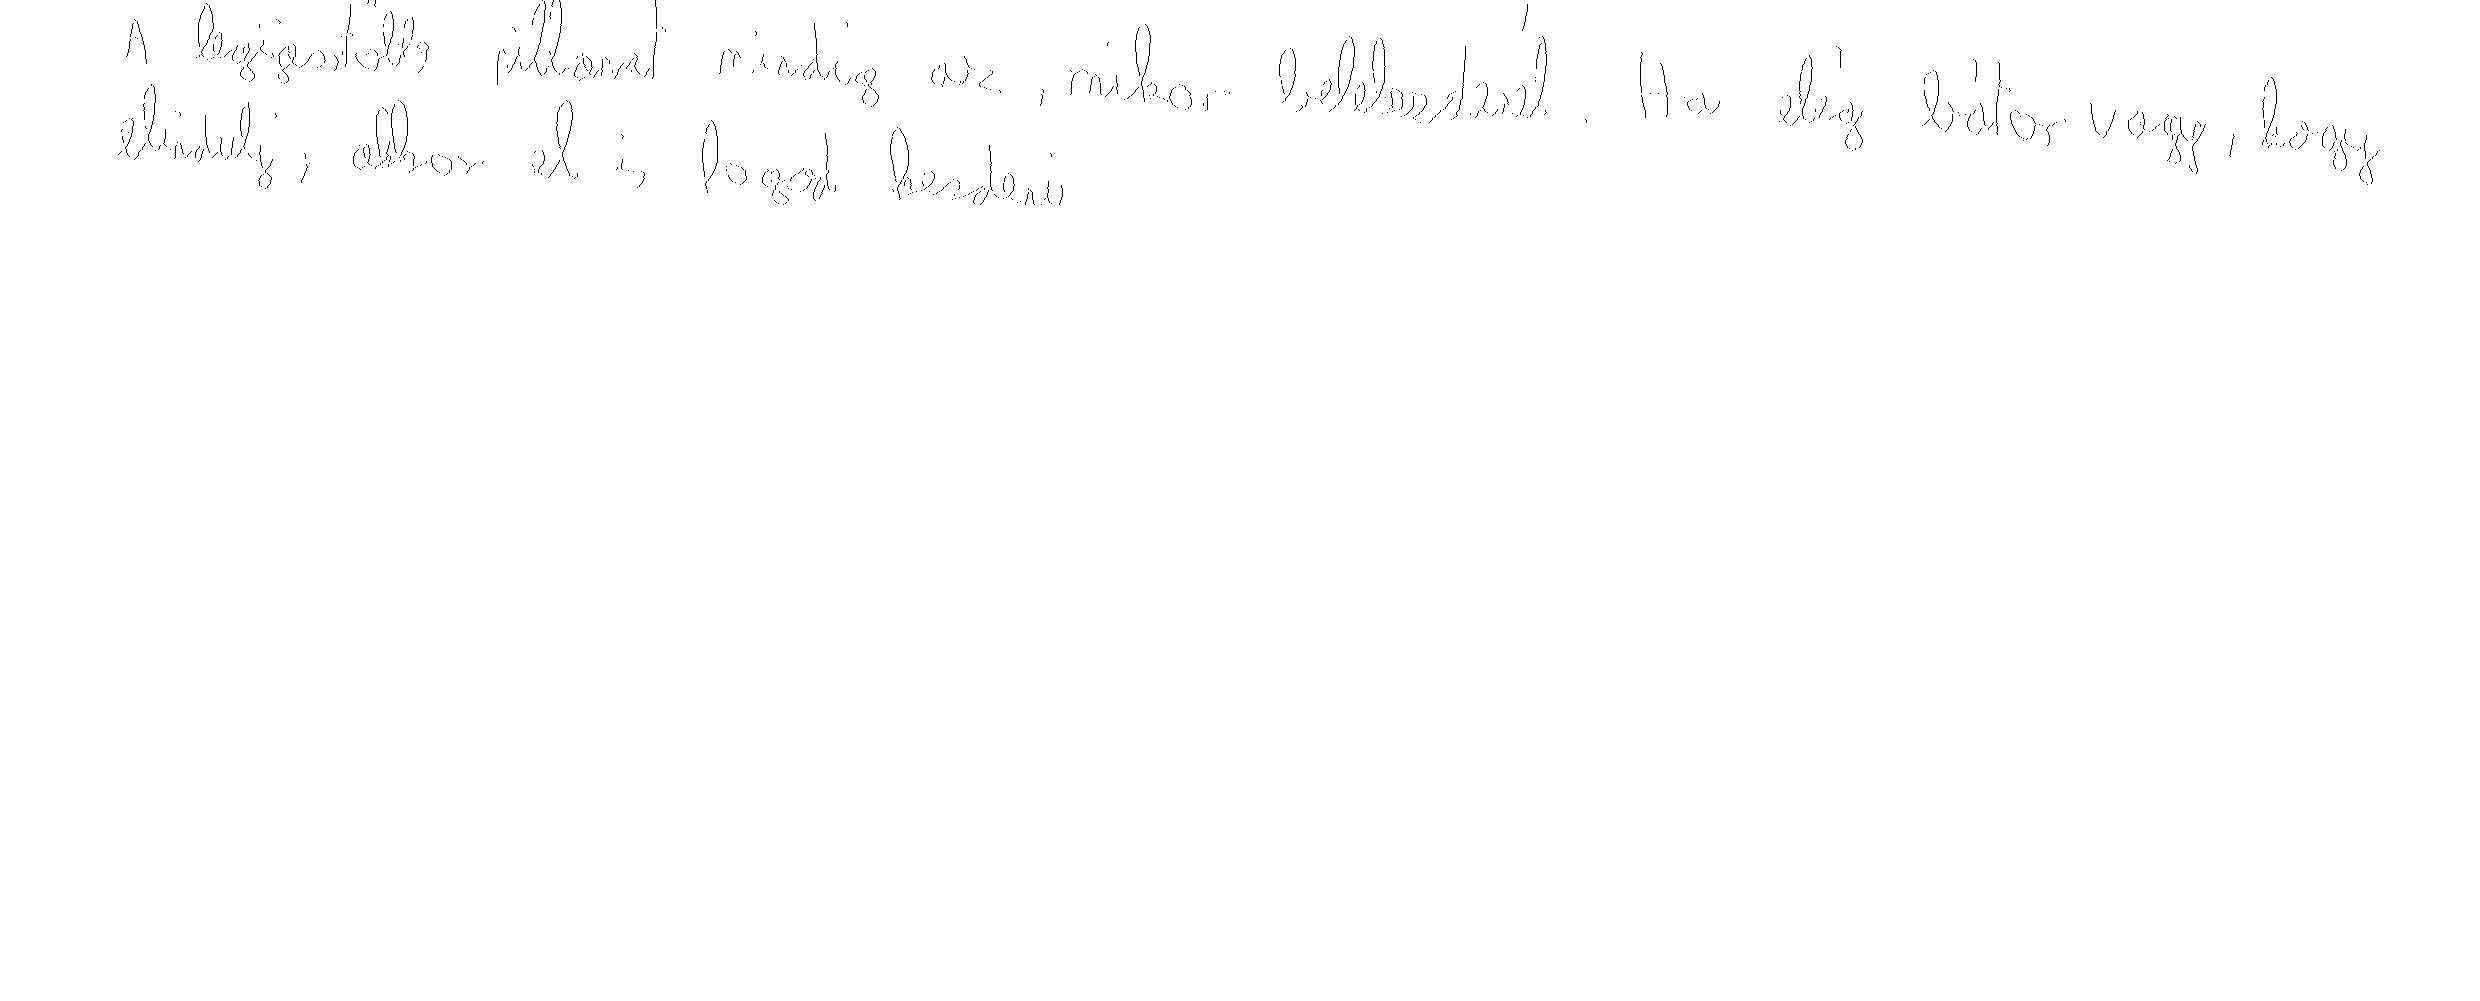 A legijesztőbb pillanat mindig az, mikor belekezdenél. Ha elég bátor vagy, hogy
elindulj, akkor el is fogod kezdeni